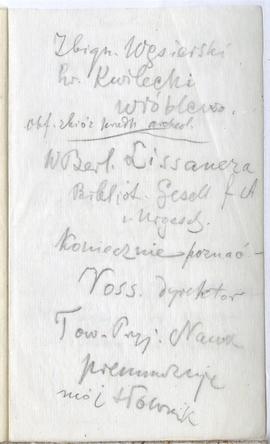 Zbign. Węsierski
hr. Kwilecki
Wróblewo.
obf. zbiór przedh. archeol.
W Berl. Lissauera
Bibljot. Gesell f. A
u. Urgesch.
Koniecznie poznać –
Voss. dyrektor
Tow. Przyj. Nauk
prenumeruje
mój słownik